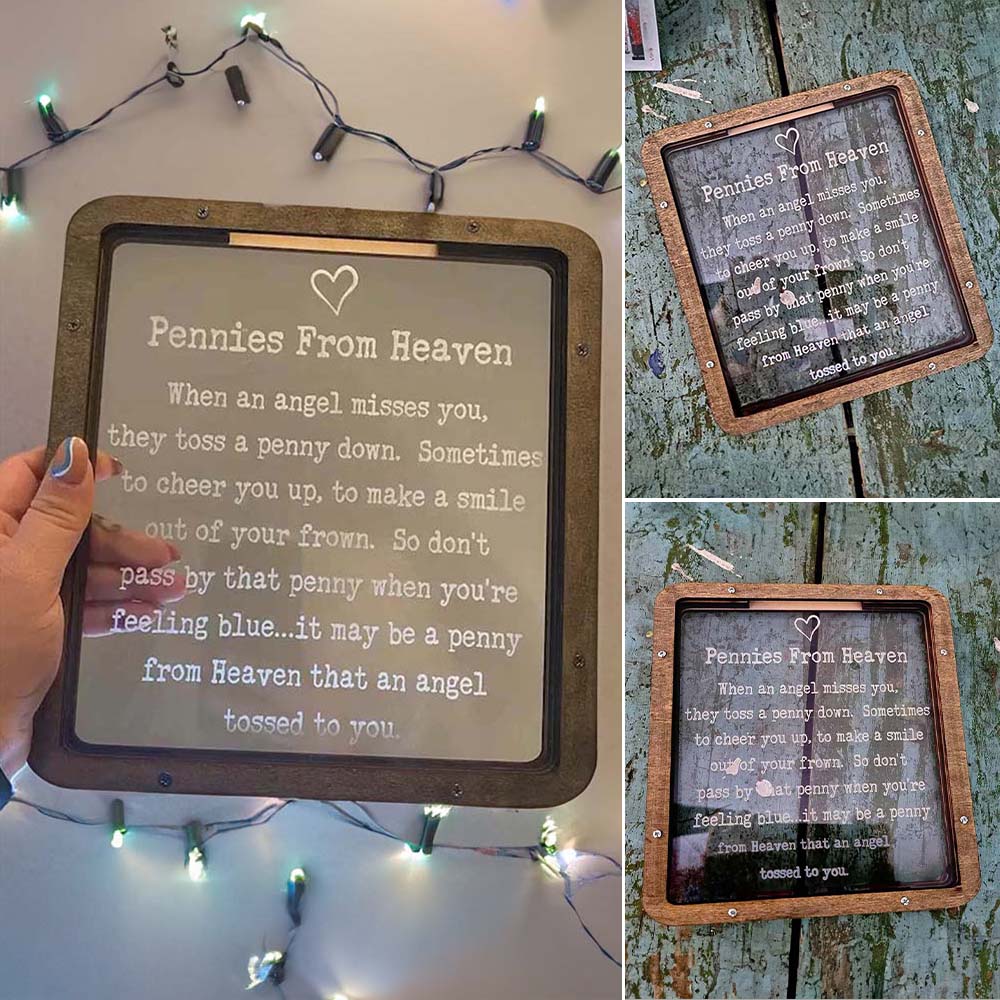 Pennies From Heaven
When an angel misses you,
they toss a penny down. Sometimes
to cheer you up, to make a smile
out of your frown. So don't
pass by that penny when you're
feeling blue...it may be a penny
from Heaven that an angel
tossed to you.
Pennies From Heaven
When an angel misses you,
they toss a penny down. Sometimes
to cheer you up, to make a smile
out of your frown. So don't
pass by that penny when you're
feeling blue...it may be a penny
from Heaven that an angel
tossed to you.
Pennies From Heaven
When an angel misses you,
they toss a penny down. Sometimes
to cheer you up, to make a smile
out of your frown. So don't
pass by that penny when you're
feeling blue...it may be a penny
from Heaven that an angel
tossed to you.